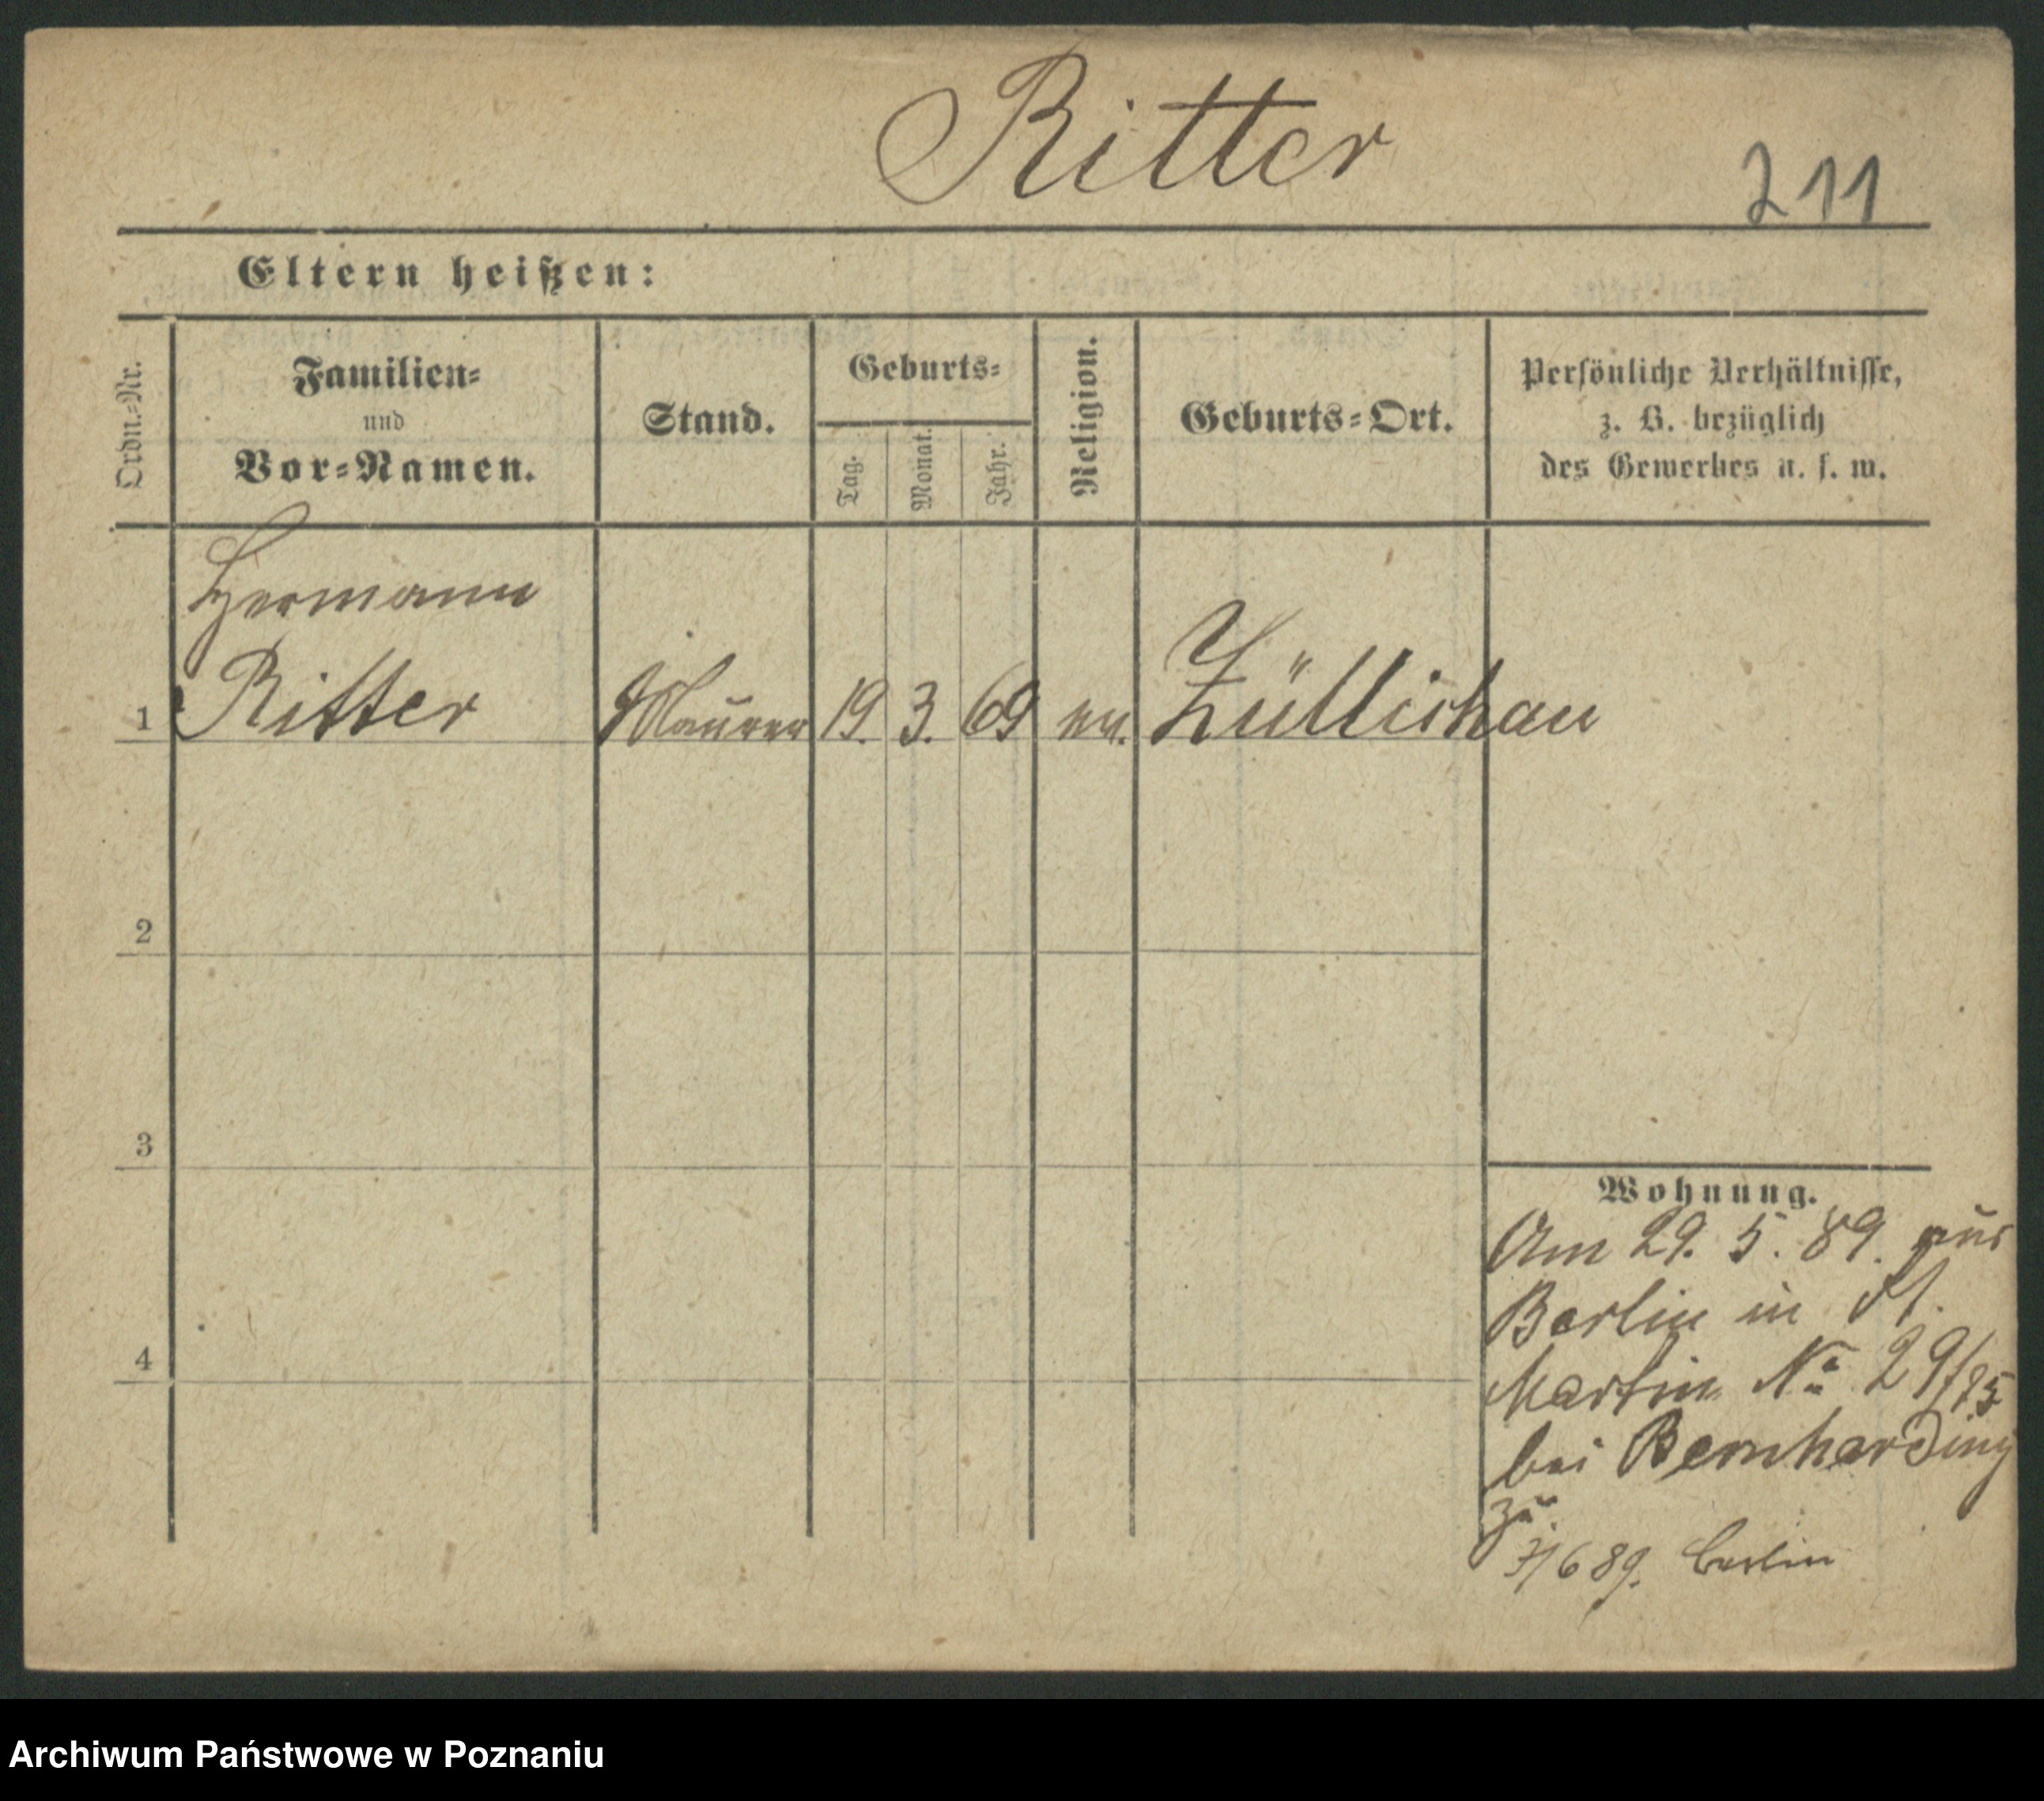 Ritter
211
Eltern heißen:
Ordn.-Nr.
Familien-
und
Vor-Namen.
Stand.
Geburts-
Tag.
Monat.
Jahr.
Religion.
Geburts-Ort.
Persönliche Verhältnisse,
z. B. bezüglich
des Gewerbes u. s. w.
Hermann
1 Ritter Maurer 19. 3. 69 ev. Züllichau
2
3
4
Wohnung.
Am 29. 5. 89. aus
Berlin in St.
Martin No 29/75
bei Bernharding
zu
7/6 89. Berlin
Archiwum Państwowe w Poznaniu